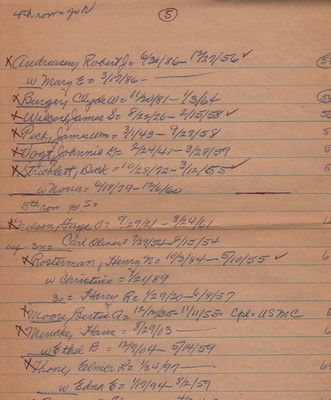 4th row = go N
5
x Andreasey, Robert J = 6/26/86 - 12/27/56 ✓
w Mary E = 3/17/86 -
x Burger, Clyde W = 11/30/81 - 1/3/64
x Wilcox, James S = 8/22/26 - 2/15/58 ✓
x Peck, James Wm = 3/1/43 - 9/29/58
x Vogt, Johnnie L = 2/24/41 - 3/28/59
x Stricklett, Dick = 10/28/72 - 3/12/55 ✓
w Nona = 9/18/79 - 12/6/60
5th row go S =
x Nelson, Faye O = 9/29/21 - 3/24/61
Carl Oliver 7/29/52 - 8/15/54
x Rosterman, Henry N = 10/3/84 - 5/10/55 ✓
w Christina = 9/21/89
s = Harry R = 1/29/20 - 6/4/57
x Moore, Bertie A = 12/10/35 - 11/11/55 = Cpl = USMC
x Mineke, Hans = 8/29/03 -
w Ethel B = 12/9/04 - 5/14/59
x Thone, Elmer L = 1/24/97 -
w Edna E = 1/17/94 8/2/59